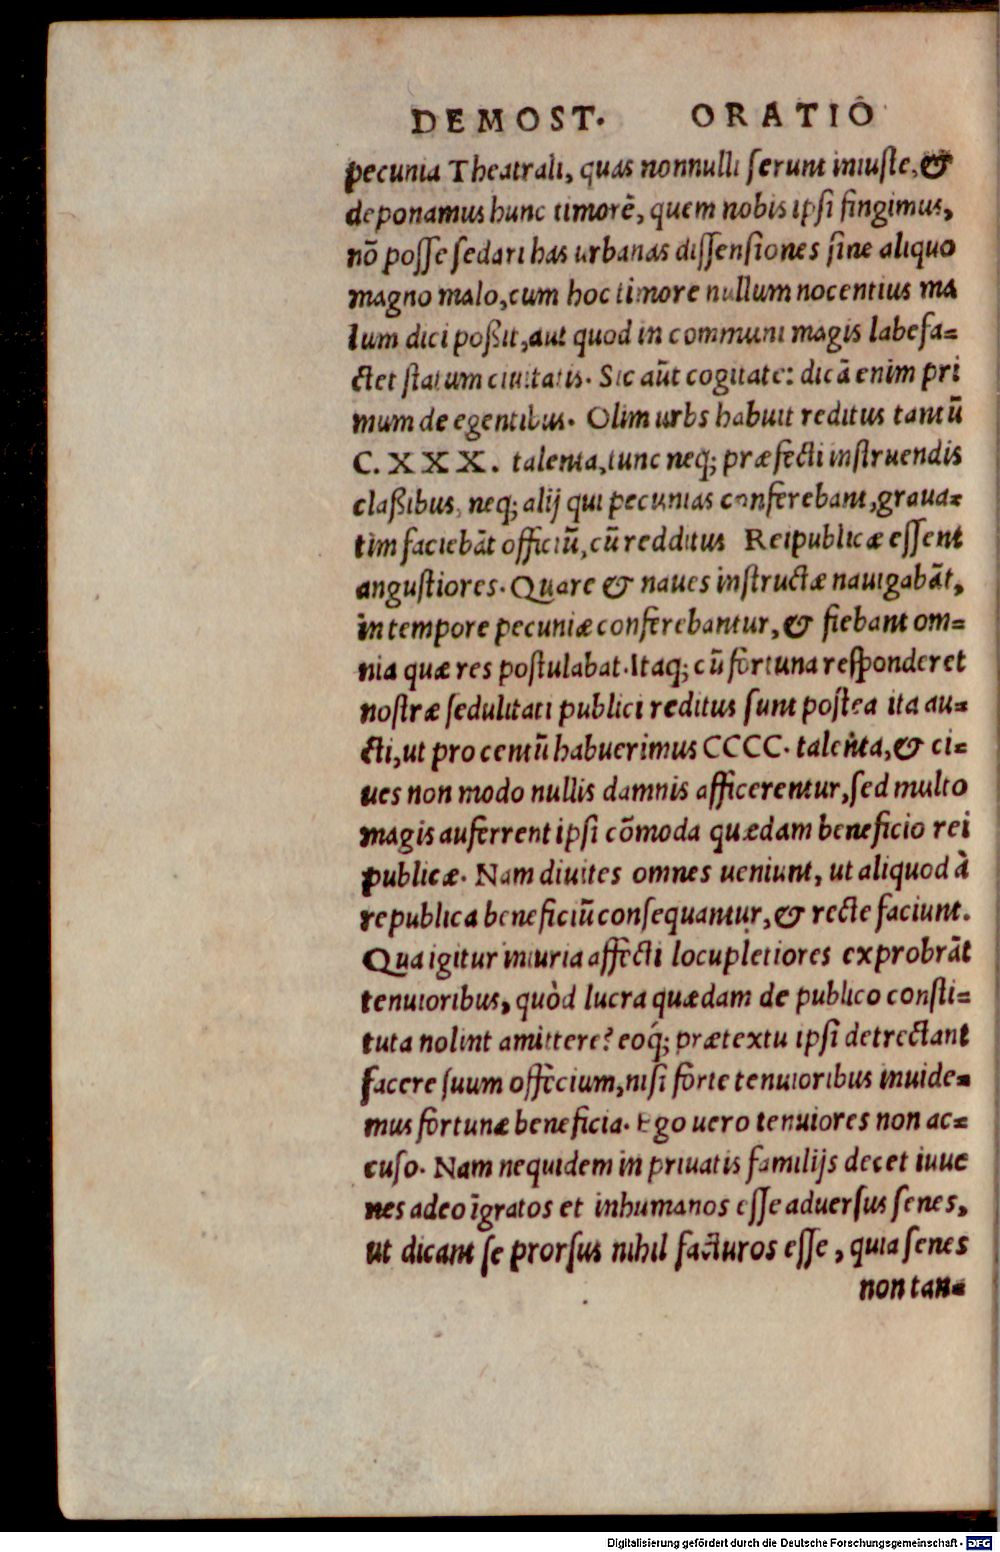 DEMOST. ORATIO
pecunia Theatrali, quas nonnulli ferunt iniuste, &
deponamus hunc timorē, quem nobis ipsi fingimus,
nō posse sedari has urbanas dissensiones sine aliquo
magno malo, cum hoc timore nullum nocentius ma
lum dici poßit, aut quod in communi magis labefa=
ctet statum ciuitatis. Sic aūt cogitate: dicā enim pri
mum de egentibus. Olim urbs habuit reditus tantū
C. XXX. talenta, tunc neq; præfecti instruendis
claßibus, neq; alij qui pecunias conferebant, graua=
tim faciebāt officiū, cū redditus Reipublicæ essent
angustiores. Quare & naues instructæ nauigabāt,
in tempore pecuniæ conferebantur, & fiebant om=
nia quæ res postulabat. Itaq; cū fortuna responderet
nostræ sedulitati publici reditus sunt postea ita au=
cti, ut pro centū habuerimus CCCC. talenta, & ci=
ues non modo nullis damnis afficerentur, sed multo
magis auferrent ipsi cōmoda quædam beneficio rei
publicæ. Nam diuites omnes ueniunt, ut aliquod à
republica beneficiū consequantur, & recte faciunt.
Qua igitur iniuria affecti locupletiores exprobrāt
tenuioribus, quòd lucra quædam de publico consti=
tuta nolint amittere? eoq́; prætextu ipsi detrectant
facere suum officium, nisi forte tenuioribus inuide=
mus fortunæ beneficia. Ego uero tenuiores non ac=
cuso. Nam nequidem in priuatis familijs decet iuue
nes adeo īgratos et inhumanos esse aduersus senes,
ut dicant se prorsus nihil facturos esse, quia senes
non tan=
Digitalisierung gefördert durch die Deutsche Forschungsgemeinschaft - DFG